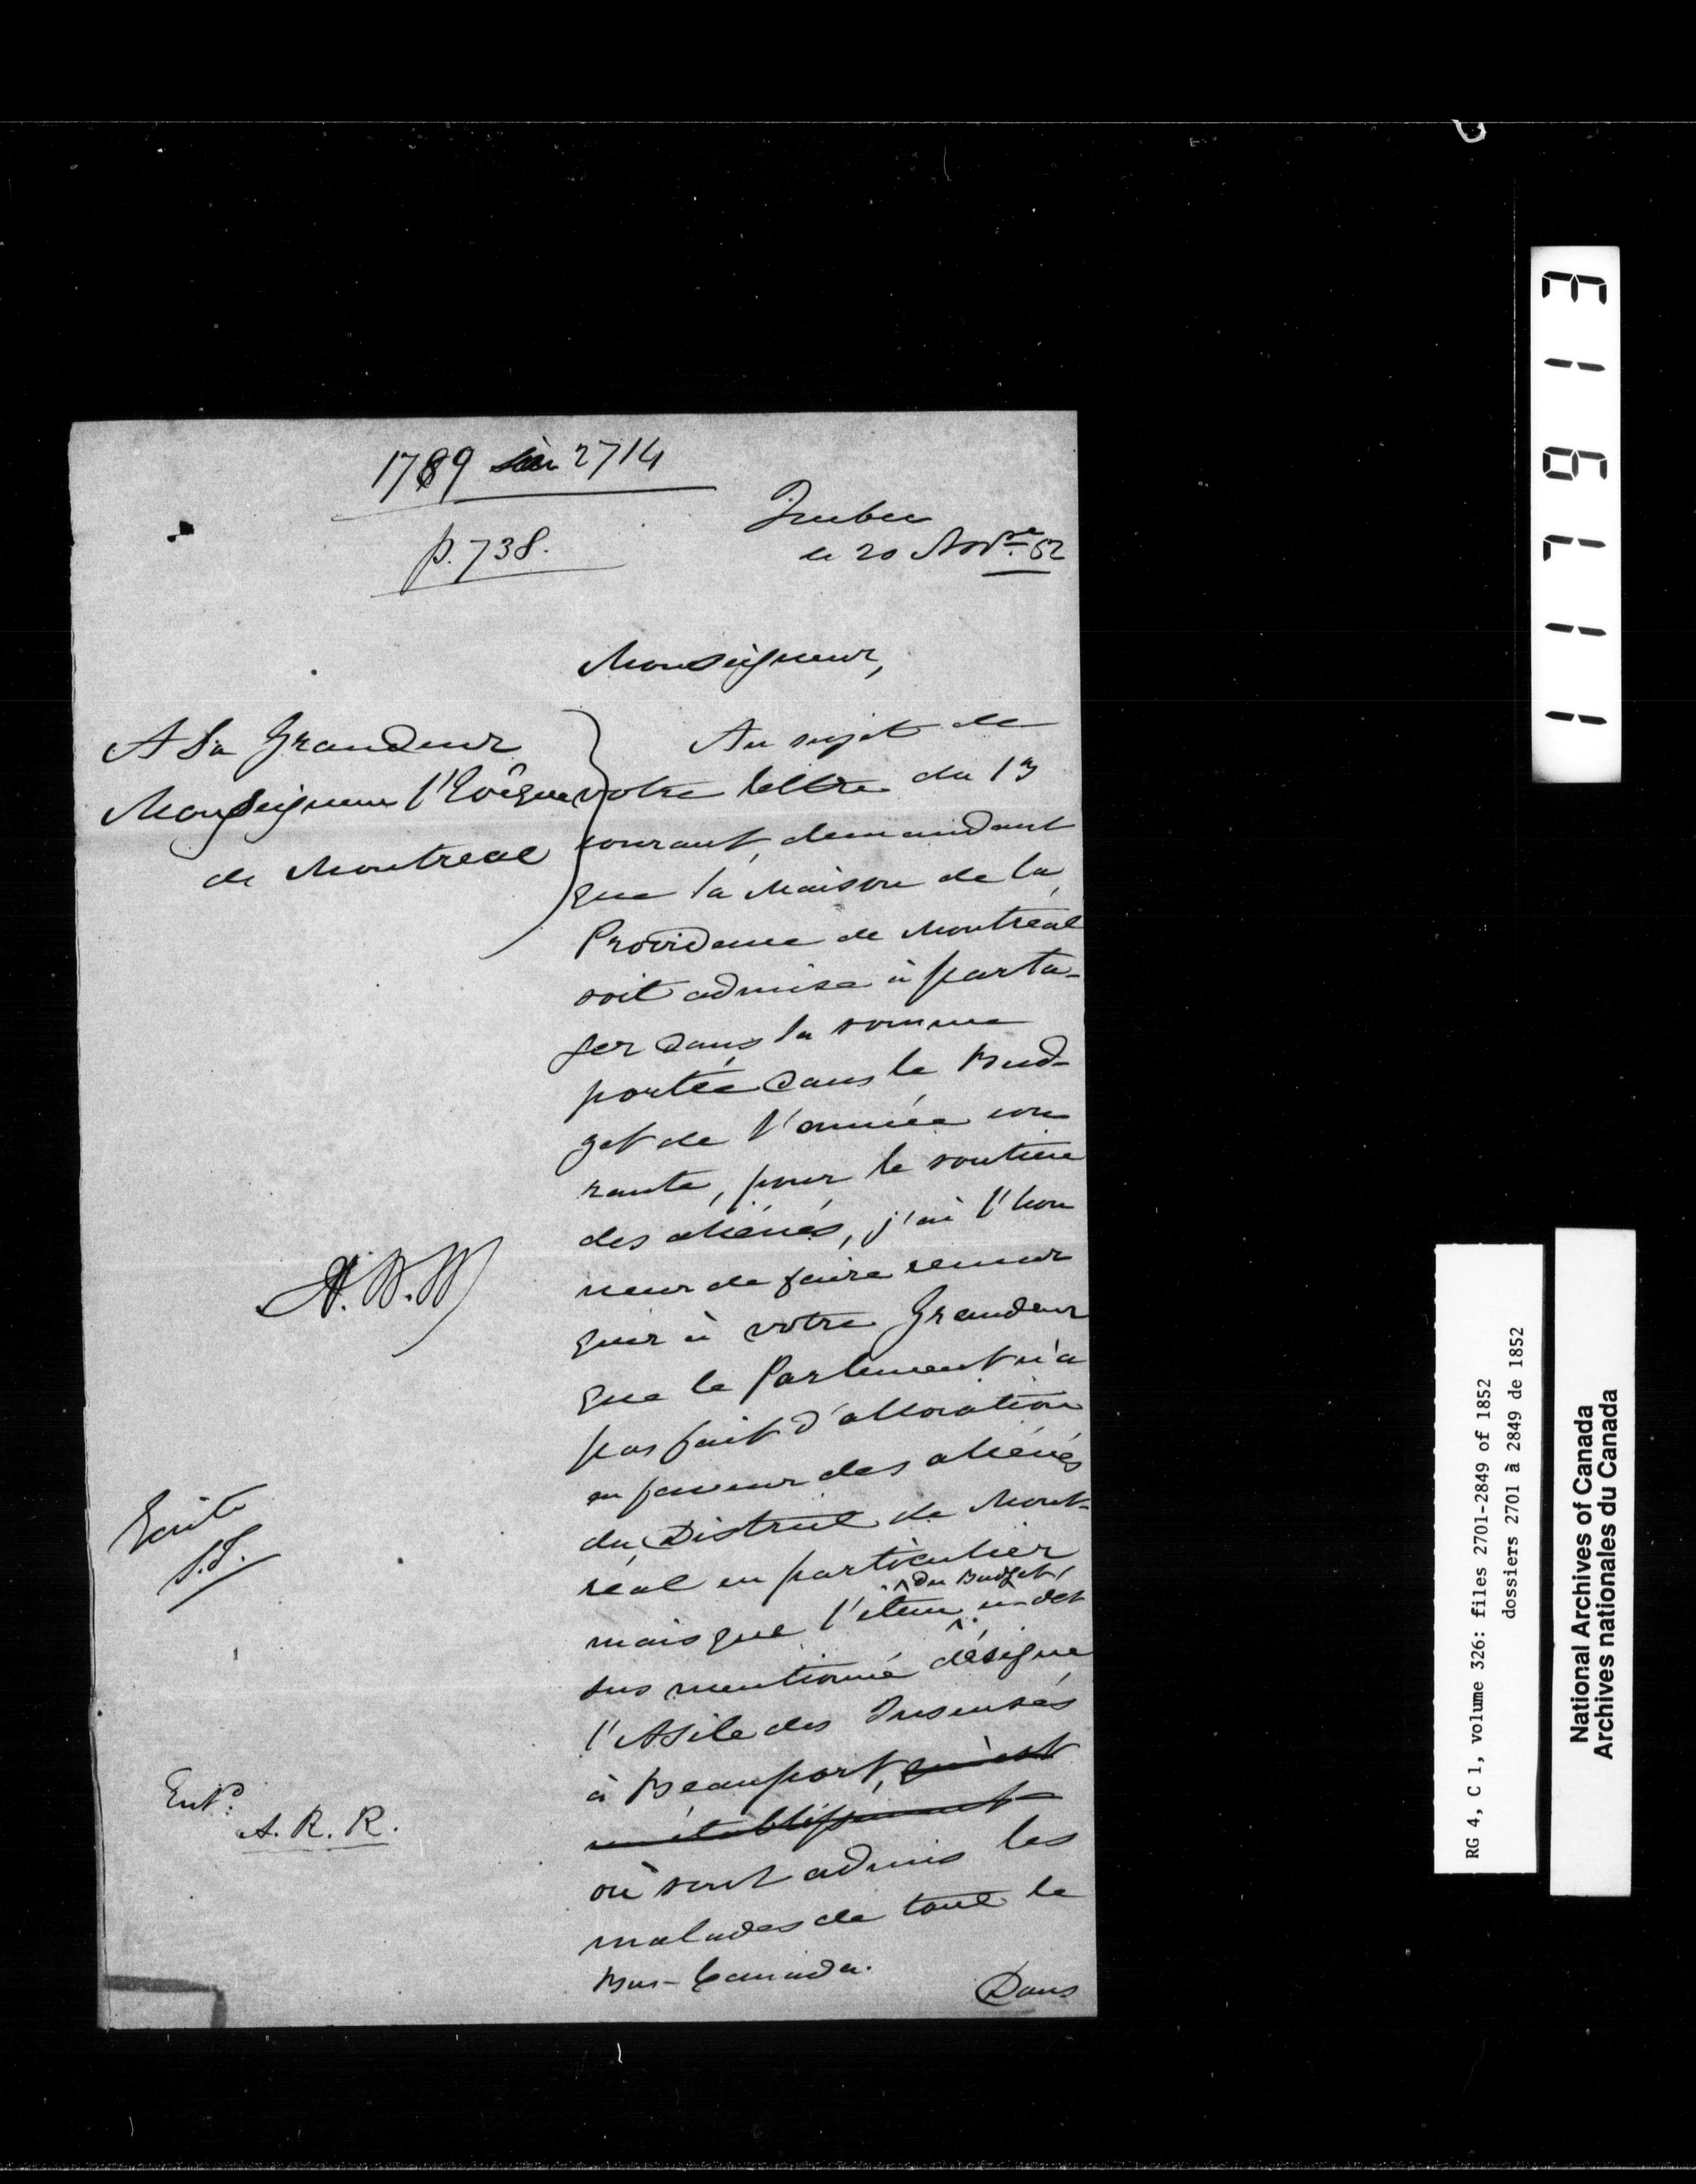 1789 sur 2714
p. 738.
Quebec
le 20 Novre 52
Monseigneur,
A Sa Grandeur
Monseigneur l'Evêque
de Montreal
Au sujet de
votre lettre du 13
courant, demandant
que la Maison de la
Providence de Montréal
soit admise à parta-
ger dans la somme
portée dans le Bud-
get de l'année cou
rante, pour le soutien
des aliénés, j'ai l'hon
neur de faire remar
quer à votre Grandeur
que le Parlement n'a
pas fait d'allocation
en faveur des aliénés
du District de Mont-
réal en particulier
mais que l'item du Budget, ci-des
sus mentionné désigne
l'Asile des Insensés
à Beauport, qui est
un établissement
où sont admis les
malades de tout le
Bas-Canada.
Dans
Ecrite
Entd.
A. R. R.
117913
RG 4, C 1, volume 326: files 2701-2849 of 1852
dossiers 2701 à 2849 de 1852
National Archives of Canada
Archives nationales du Canada